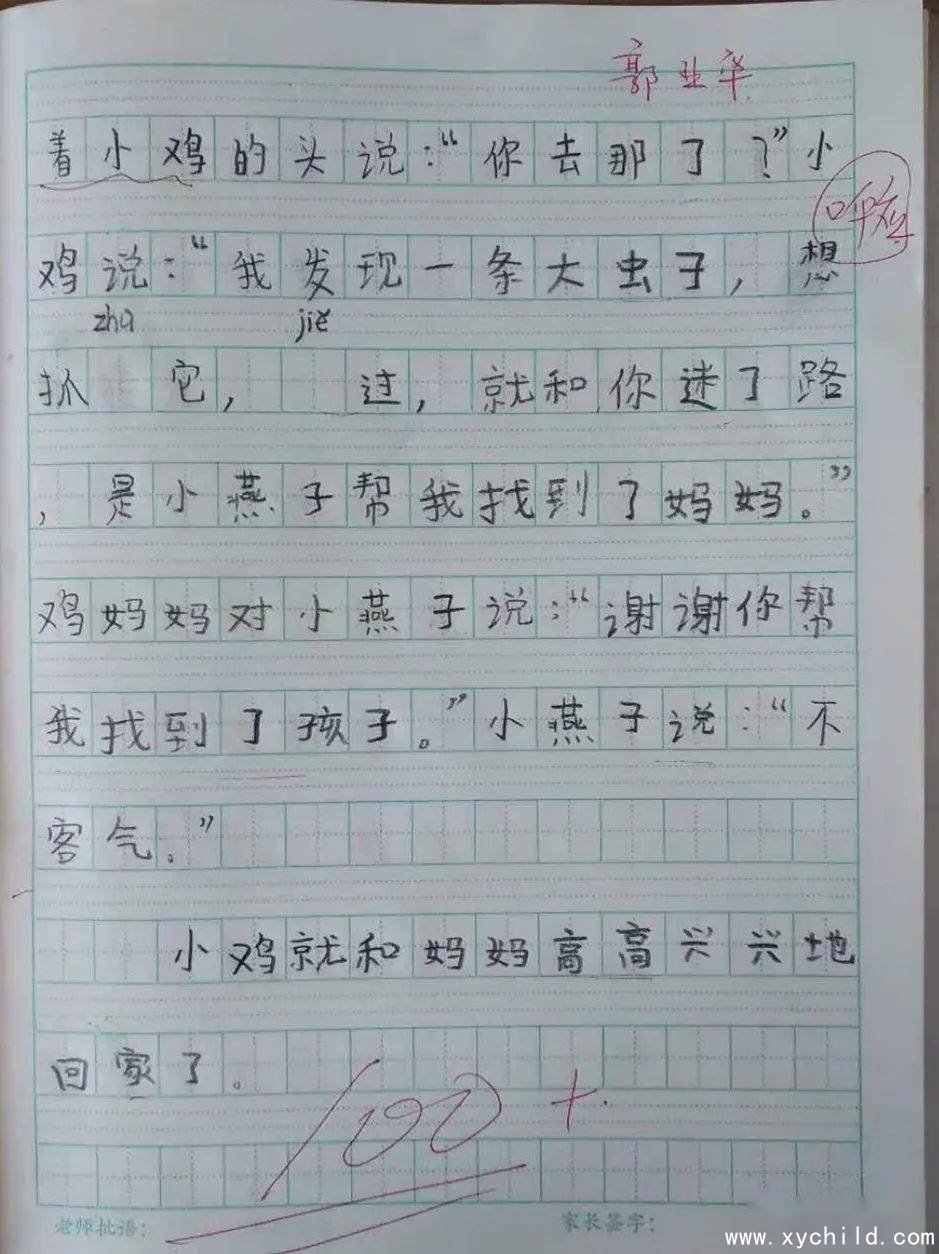 郭业华
着小鸡的头说：“你去那了？”小
鸡说：“我发现一条大虫子，想
zhu jie
抓 它， 过，就和你迷了路
，是小燕子帮我找到了妈妈。”
鸡妈妈对小燕子说：“谢谢你帮
我找到了孩子。”小燕子说：“不
客气。”
小鸡就和妈妈高高兴兴地
回家了。
100+
老师批语： 家长签字：
www.xychild.com